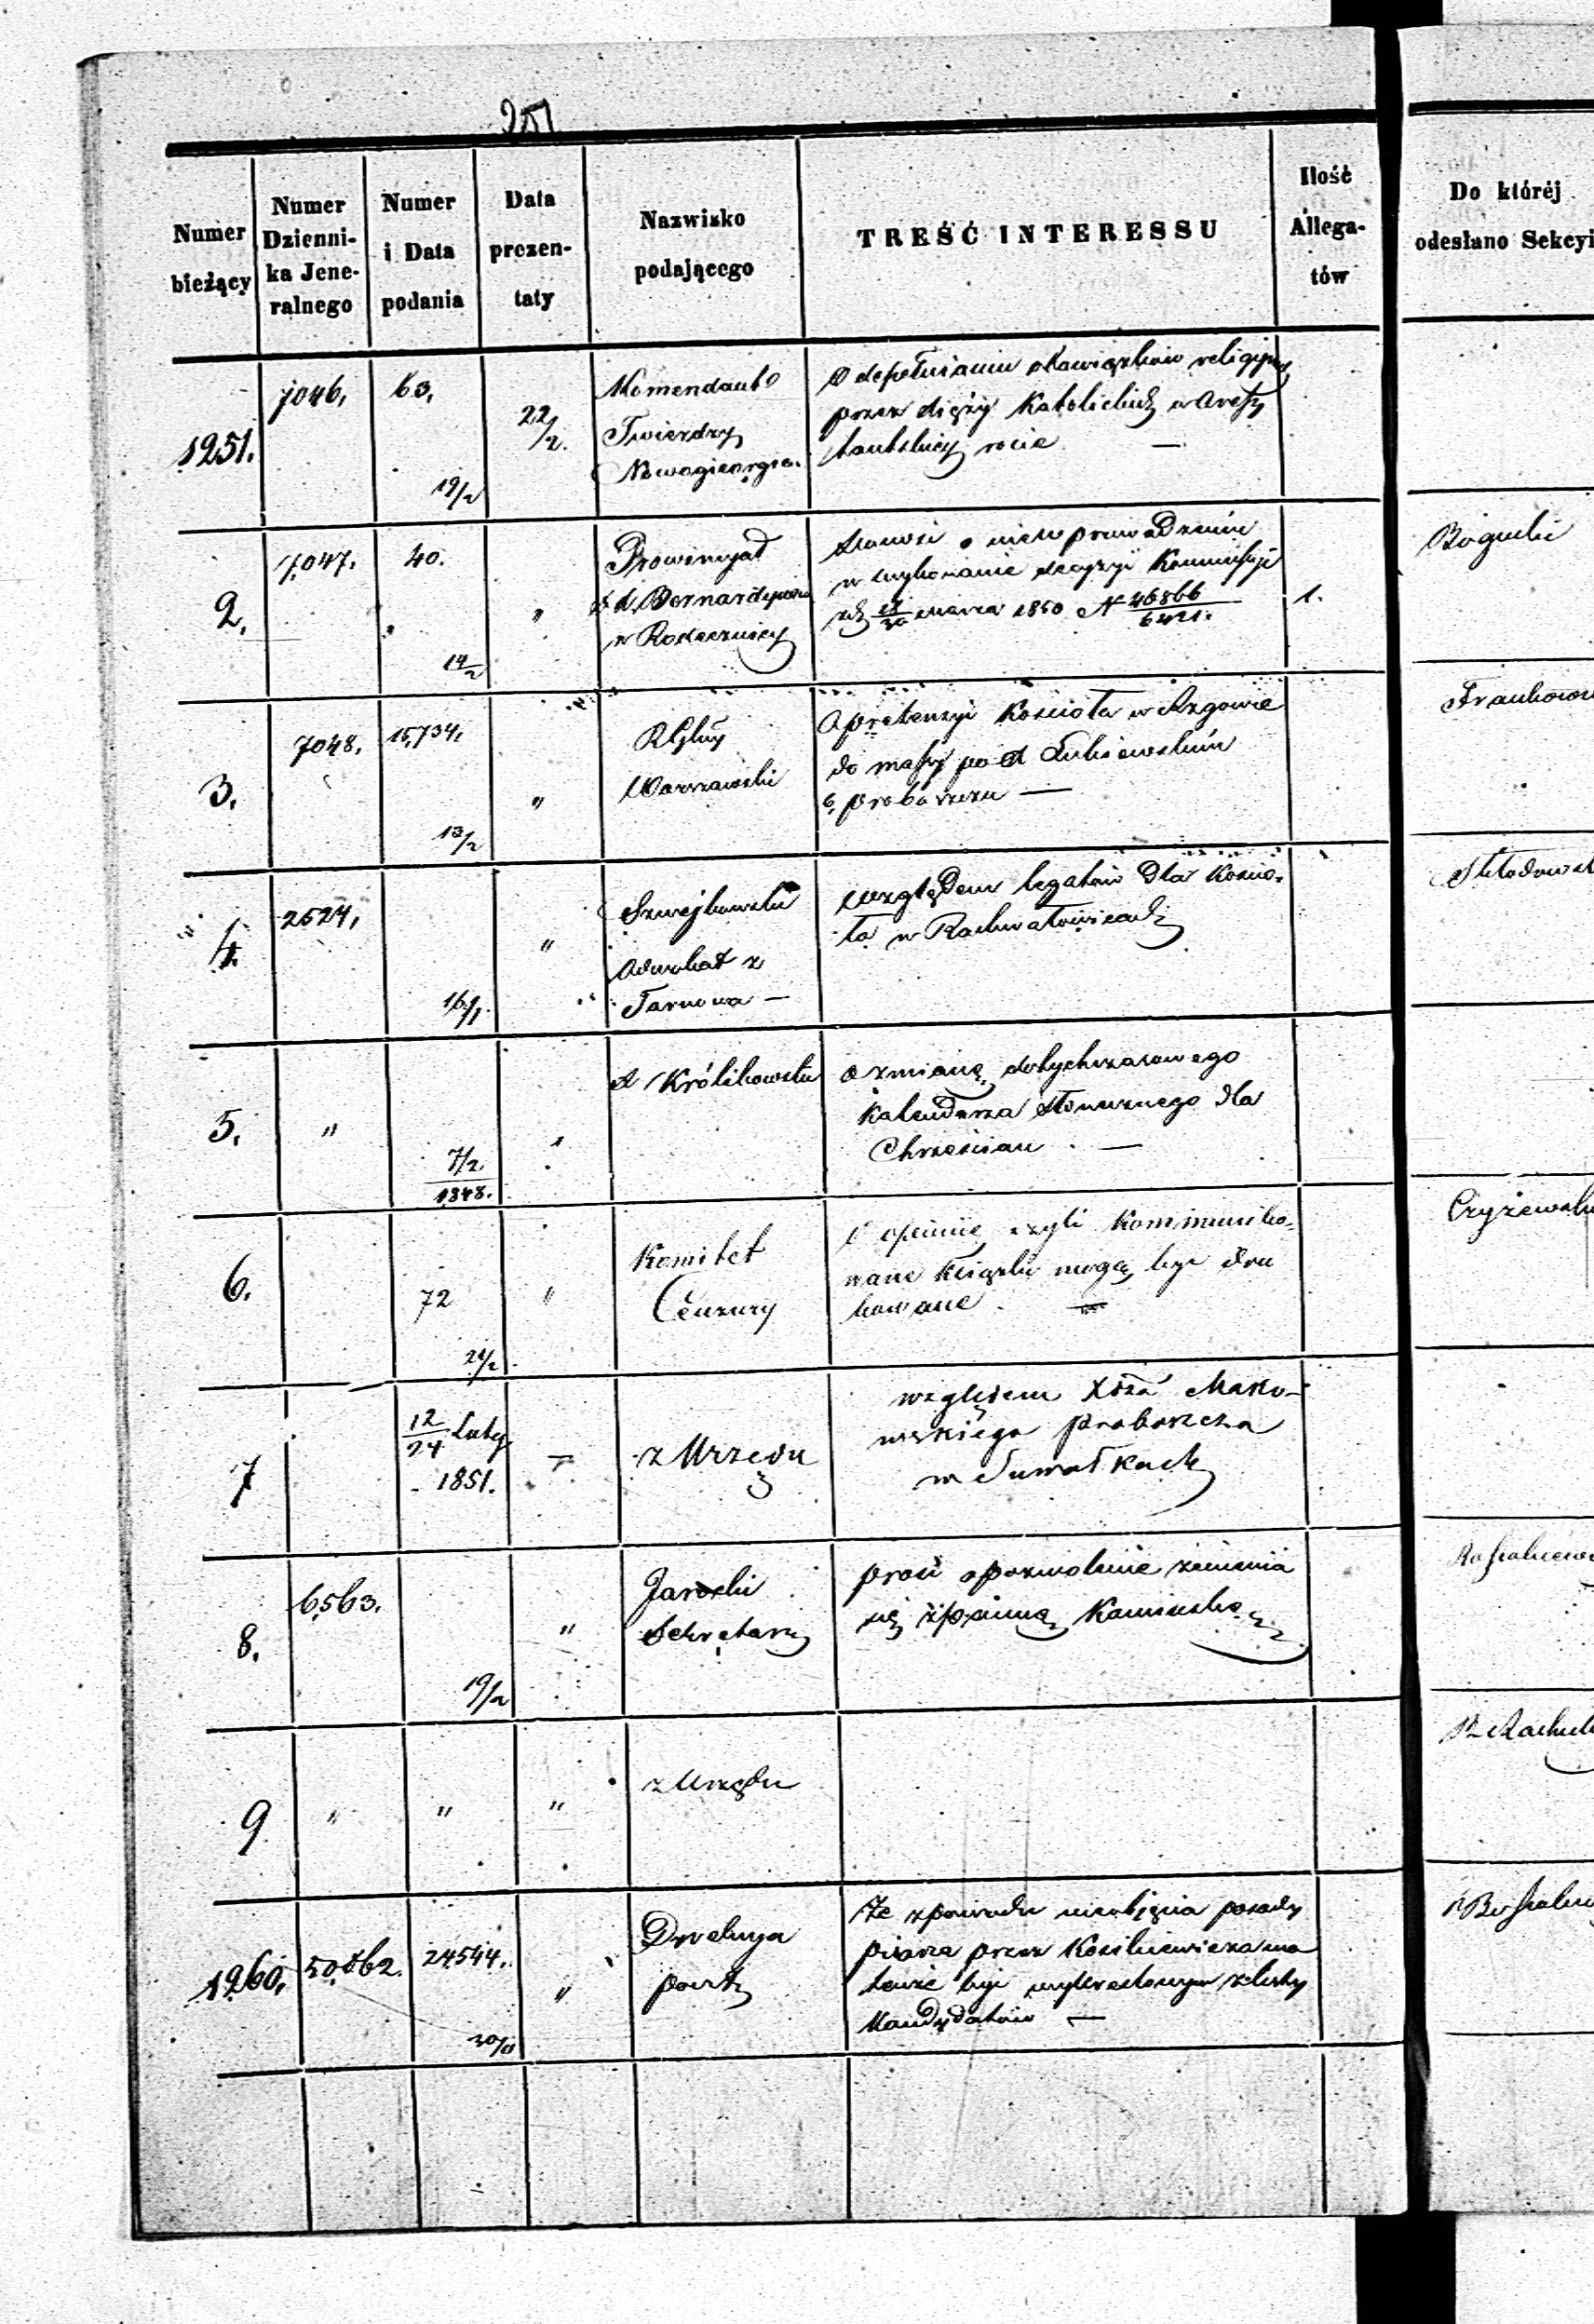 251
Numer bieżący
Numer Dzienni-ka Jene-ralnego
Numer i Data podania
Data prezen-taty
Nazwisko podającego
TREŚĆ INTERESSU
Ilość Allega-tów
Do któréj odesłano Sekcyi
1251.
7046.
63.
19/2
22/2.
Komendant
Twierdzy
Nowogieorgie.
O dopełnianiu obowiązków religijnych
przez Xięży Katolickich w Aresz
tantskiej rocie —
2.
7,047.
40.
14/2
"
Prowincyał
XX. Bernardynów
w Radecznicy
donosi o niewprowadzeniu
w wykonanie decyzyi Kommissyi
marca 1850 N 46866
1.
Bogucki
3.
7048.
15,734.
13/2
"
R Gbny
Warszawski
O pretensyi Kościoła w Rzgowie
do massy po X Lubiewskim
b. proboszczu —
4.
2624,
16/1.
"
Szwejkowski
Adwokat z
Tarnowa —
względem legatów dla Kościo-
ła w Rachwałowicach
5.
"
7/2
1848.
"
X Królikowski
o zmianę dotychczasowego
Kalendarza słonecznego dla
Chrześcian —
6.
72
21/2
"
Komitet
Cenzury
O opinię czyli kommuniko-
wane książki mogą być dru
kowane
Czyżewski
7
12/24 Luty
1851.
z Urzędu
względem Xdza Mako-
wskiego proboszcza
w Suwałkach
8.
6,563.
19/2
"
Jarocki
Sekretarz
prosi o pozwolenie żenienia
się z panną Kamińską
9
"
"
"
z Urzędu
1260.
50,562.
24544.
"
Dyrekcya
poczt
Że z powodu nieobjęcia posady
pisarza przez Kosilkiewicza ma
tenże być wykreślonym z listy
Kandydatów —